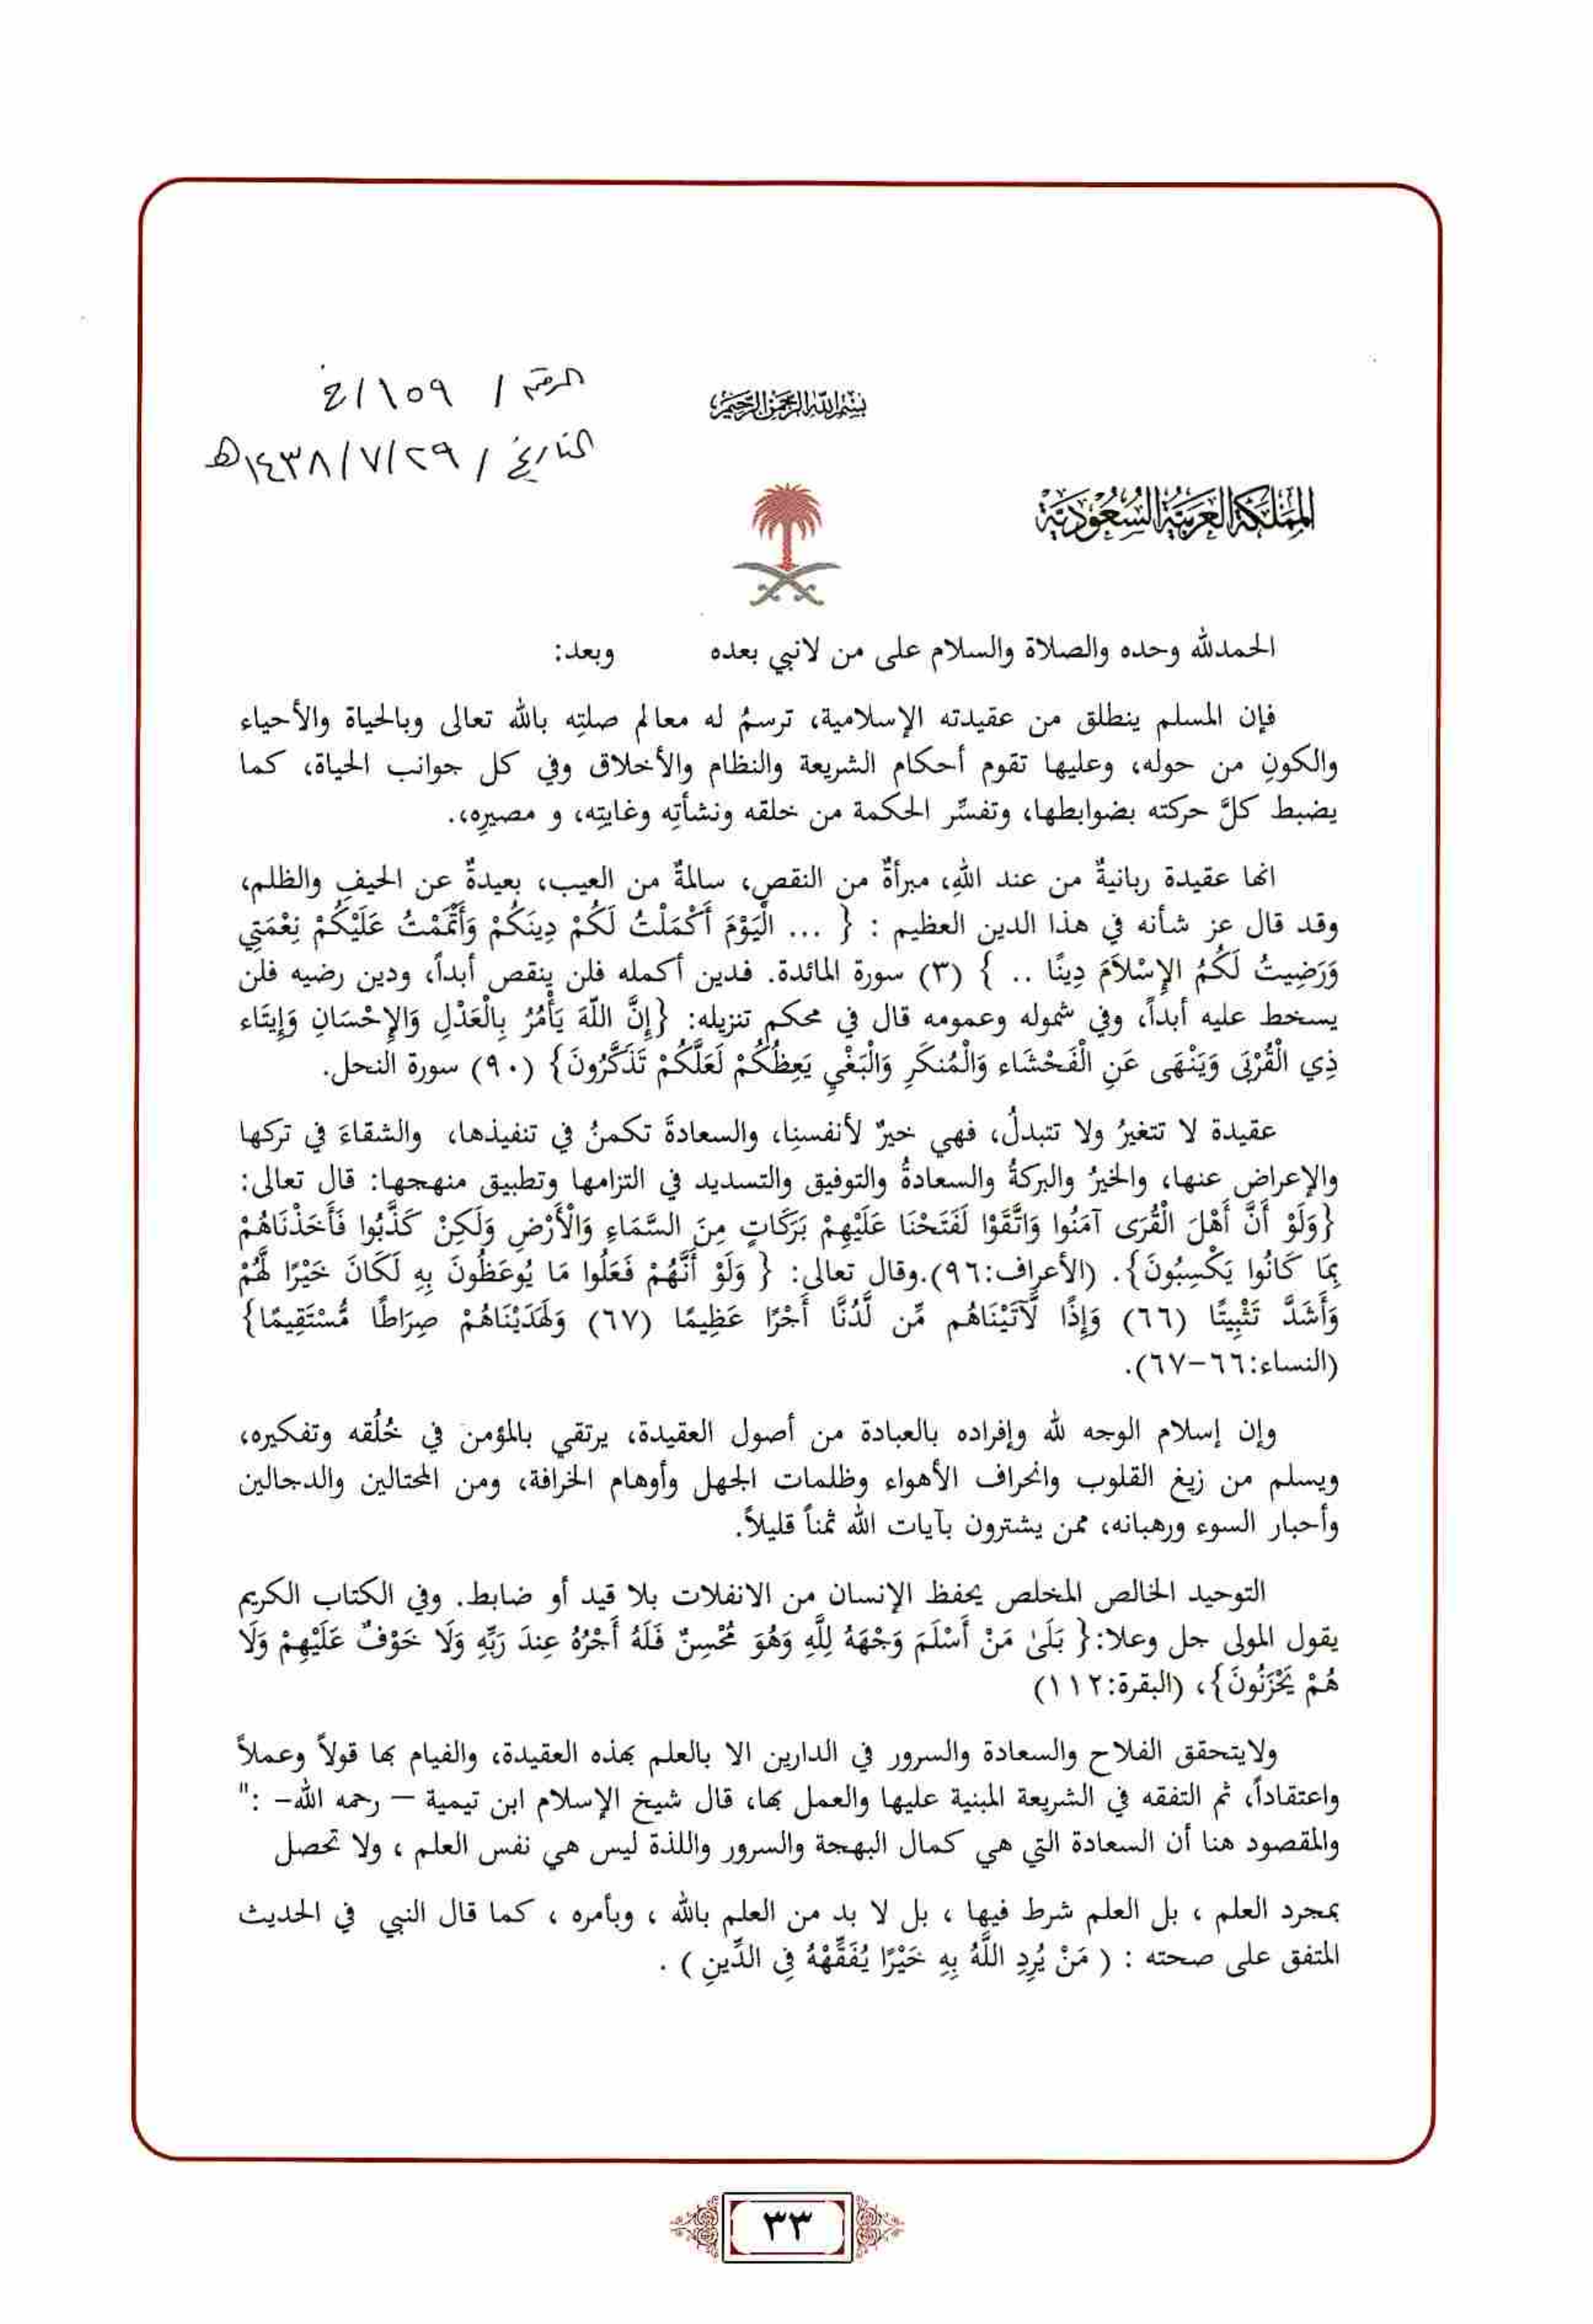 بسم الله الرحمن الرحيم
الرقم / ١٥٩/خ
التاريخ / ١٤٣٨/٧/٢٩هـ
المملكة العربية السعودية
الحمدلله وحده والصلاة والسلام على من لانبي بعده وبعد:
فإن المسلم ينطلق من عقيدته الإسلامية، ترسمُ له معالم صلتِه بالله تعالى وبالحياة والأحياء
والكونِ من حوله، وعليها تقوم أحكام الشريعة والنظام والأخلاق وفي كل جوانب الحياة، كما
يضبط كلَّ حركته بضوابطها، وتفسِّر الحكمة من خلقه ونشأتِه وغايتِه، و مصيرِه،.
انها عقيدة ربانيةٌ من عند اللهِ، مبرأةٌ من النقصِ، سالمةٌ من العيب، بعيدةٌ عن الحيفِ والظلم،
وقد قال عز شأنه في هذا الدين العظيم : { ... الْيَوْمَ أَكْمَلْتُ لَكُمْ دِينَكُمْ وَأَتْمَمْتُ عَلَيْكُمْ نِعْمَتِي
وَرَضِيتُ لَكُمُ الإِسْلاَمَ دِينًا .. } (٣) سورة المائدة. فدين أكمله فلن ينقص أبداً، ودين رضيه فلن
يسخط عليه أبداً، وفي شموله وعمومه قال في محكم تنزيله: {إِنَّ اللّهَ يَأْمُرُ بِالْعَدْلِ وَالإِحْسَانِ وَإِيتَاء
ذِي الْقُرْبَى وَيَنْهَى عَنِ الْفَحْشَاء وَالْمُنكَرِ وَالْبَغْيِ يَعِظُكُمْ لَعَلَّكُمْ تَذَكَّرُونَ} (٩٠) سورة النحل.
عقيدة لا تتغيرُ ولا تتبدلُ، فهي خيرٌ لأنفسنِا، والسعادةَ تكمنُ في تنفيذها، والشقاءَ في تركها
والإعراض عنها، والخيرُ والبركةُ والسعادةُ والتوفيق والتسديد في التزامها وتطبيق منهجها: قال تعالى:
{وَلَوْ أَنَّ أَهْلَ الْقُرَى آمَنُوا وَاتَّقَوْا لَفَتَحْنَا عَلَيْهِمْ بَرَكَاتٍ مِنَ السَّمَاءِ وَالْأَرْضِ وَلَكِنْ كَذَّبُوا فَأَخَذْنَاهُمْ
بِمَا كَانُوا يَكْسِبُونَ}. (الأعراف:٩٦).وقال تعالى: { وَلَوْ أَنَّهُمْ فَعَلُوا مَا يُوعَظُونَ بِهِ لَكَانَ خَيْرًا لَّهُمْ
وَأَشَدَّ تَثْبِيتًا (٦٦) وَإِذًا لَّآتَيْنَاهُم مِّن لَّدُنَّا أَجْرًا عَظِيمًا (٦٧) وَلَهَدَيْنَاهُمْ صِرَاطًا مُّسْتَقِيمًا}
(النساء:٦٦-٦٧).
وإن إسلام الوجه لله وإفراده بالعبادة من أصول العقيدة، يرتقي بالمؤمن في خُلُقه وتفكيره،
ويسلم من زيغ القلوب وانحراف الأهواء وظلمات الجهل وأوهام الخرافة، ومن المحتالين والدجالين
وأحبار السوء ورهبانه، ممن يشترون بآيات الله ثمناً قليلاً.
التوحيد الخالص المخلص يحفظ الإنسان من الانفلات بلا قيد أو ضابط. وفي الكتاب الكريم
يقول المولى جل وعلا:{ بَلَىٰ مَنْ أَسْلَمَ وَجْهَهُ لِلَّهِ وَهُوَ مُحْسِنٌ فَلَهُ أَجْرُهُ عِندَ رَبِّهِ وَلَا خَوْفٌ عَلَيْهِمْ وَلَا
هُمْ يَحْزَنُونَ}، (البقرة:١١٢)
ولايتحقق الفلاح والسعادة والسرور في الدارين الا بالعلم بهذه العقيدة، والفيام بها قولاً وعملاً
واعتقاداً، ثم التفقه في الشريعة المبنية عليها والعمل بها، قال شيخ الإسلام ابن تيمية – رحمه الله- :"
والمقصود هنا أن السعادة التي هي كمال البهجة والسرور واللذة ليس هي نفس العلم ، ولا تحصل
بمجرد العلم ، بل العلم شرط فيها ، بل لا بد من العلم بالله ، وبأمره ، كما قال النبي في الحديث
المتفق على صحته : ( مَنْ يُرِدِ اللَّهُ بِهِ خَيْرًا يُفَقِّهْهُ فِى الدِّينِ ) .
٣٣